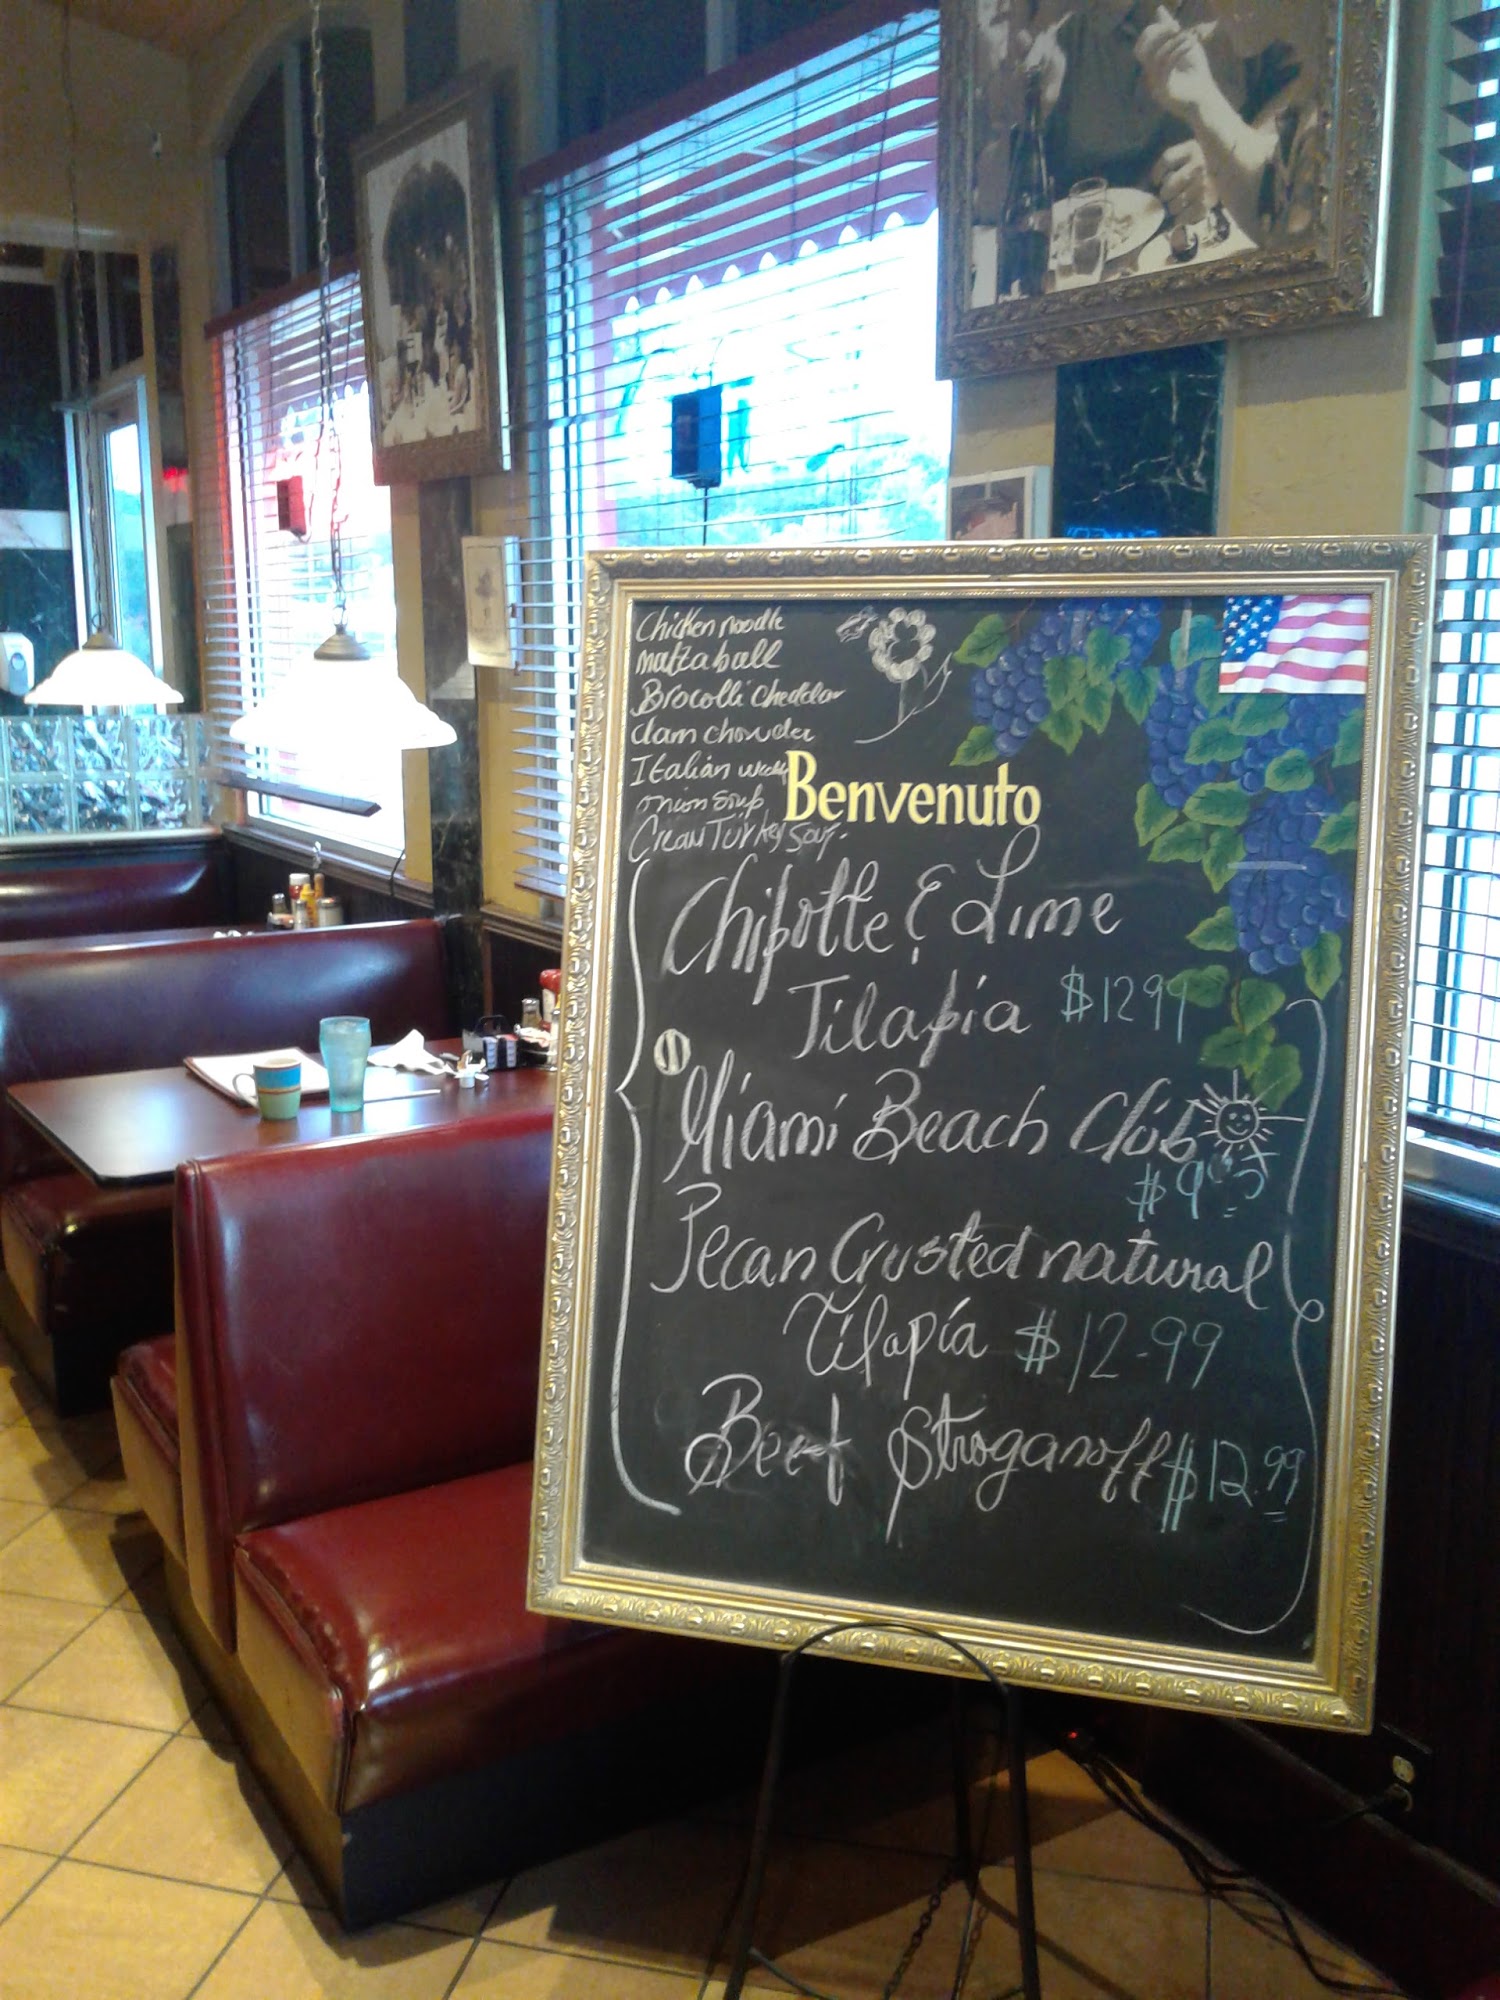 Chicken noodle
matzaball
Brocolli Cheddar
clam chowder
Italian
onion soup
Cream Turkey soup.
Benvenuto
Chipotte & Lime
Tilapia $12 99
Miami Beach Club
$9.95
Pecan Crusted natural
Tilapia $12-99
Beef Stroganoff $12.99